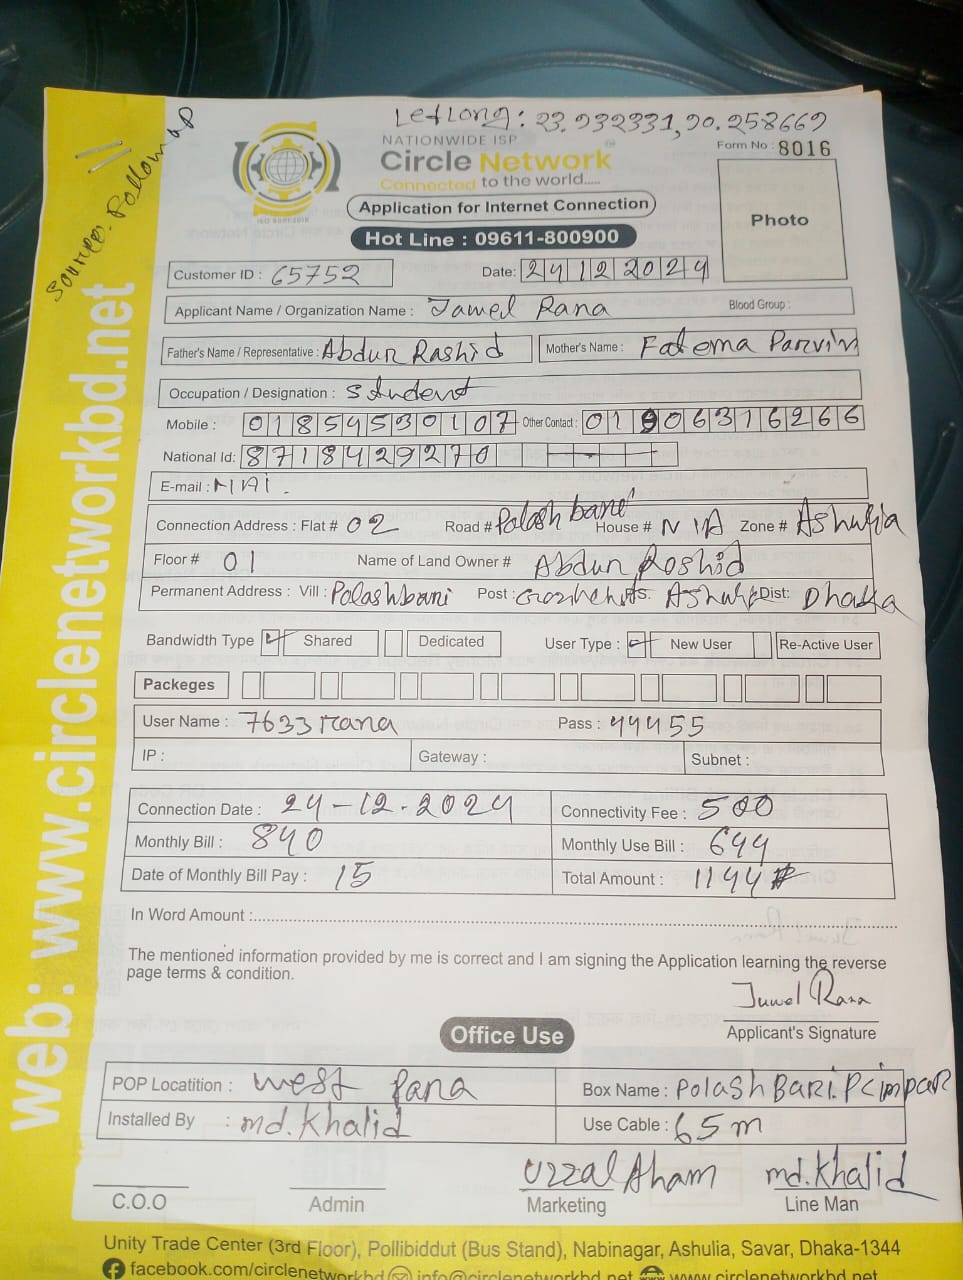 Let Long: 23.932331, 90.258669
NATIONWIDE ISP
Circle Network
Connected to the world.....
Form No : 8016
Application for Internet Connection
Hot Line : 09611-800900
Photo
Customer ID : 65752 Date: 24 12 2024
Applicant Name / Organization Name : Juwel Rana Blood Group :
Father's Name / Representative : Abdur Rashid Mother's Name : Fatema Parvin
Occupation / Designation : Student
Mobile : 01854530107 Other Contact : 01906316266
National Id: 8718429270
E-mail : N/A
Connection Address : Flat # 02 Road # Polashbari House # N/A Zone # Ashulia
Floor # 01 Name of Land Owner # Abdur Roshid
Permanent Address : Vill : Polashbari Post : P.S: Ashulia Dist: Dhaka
Bandwidth Type Shared Dedicated User Type : New User Re-Active User
Packeges
User Name : 7633rana Pass : 44455
IP : Gateway : Subnet :
Connection Date : 24-12-2024 Connectivity Fee : 500
Monthly Bill : 840 Monthly Use Bill : 644
Date of Monthly Bill Pay : 15 Total Amount : 1144
In Word Amount :
The mentioned information provided by me is correct and I am signing the Application learning the reverse
page terms & condition.
Juwel Rana
Applicant's Signature
Office Use
POP Locatition : west Para Box Name : Polash Bari.
Installed By : md.Khalid Use Cable : 65m
Uzzal Aham md.Khalid
C.O.O Admin Marketing Line Man
Unity Trade Center (3rd Floor), Pollibiddut (Bus Stand), Nabinagar, Ashulia, Savar, Dhaka-1344
facebook.com/circlenetworkbd info@circlenetworkbd.net www.circlenetworkbd.net
web: www.circlenetworkbd.net